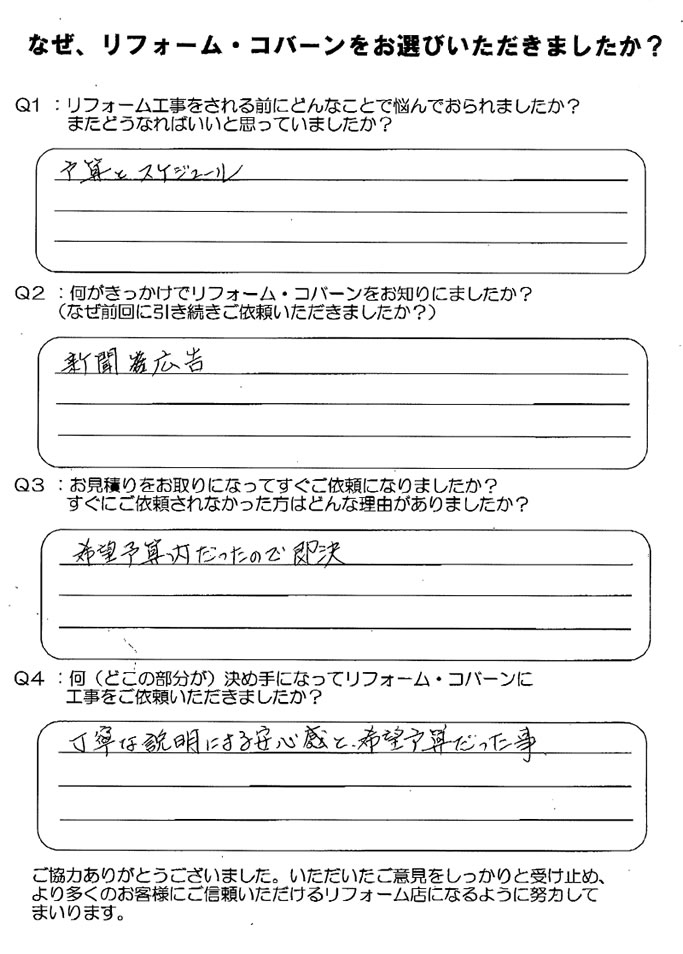 なぜ、リフォーム・コバーンをお選びいただきましたか?
Q1 :リフォーム工事をされる前にどんなことで悩んでおられましたか?
またどうなればいいと思っていましたか?
予算と スケジュール
Q2 :何がきっかけでリフォーム・コバーンをお知りにましたか?
(なぜ前回に引き続きご依頼いただきましたか?)
新聞 広告
Q3 :お見積りをお取りになってすぐご依頼になりましたか?
すぐにご依頼されなかった方はどんな理由がありましたか?
希望予算内だったので即決
Q4 :何(どこの部分が)決め手になってリフォーム・コバーンに
工事をご依頼いただきましたか?
丁寧な説明による安心感と、希望予算だった事
ご協力ありがとうございました。いただいたご意見をしっかりと受け止め、
より多くのお客様にご信頼いただけるリフォーム店になるように努力して
まいります。